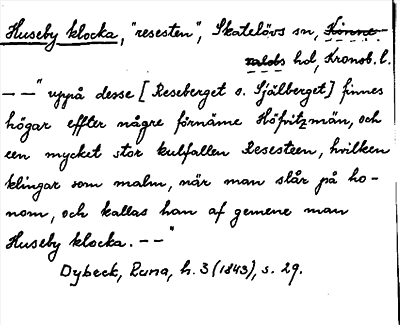 Huseby klocka, "resesten", Skatelövs sn, Kinne-
valds hd, Kronob. l.
– – " uppå desse [Reseberget o. Själberget] finnes
högar effter någre förnäme Höfvitzmän, och
een mycket stor kulfallen Resesteen, hvilken
klingar som malm, när man slår på ho-
nom, och kallas han af gemene man
Huseby klocka. – – "
Dybeck, Runa, h. 3 (1843), s. 29.